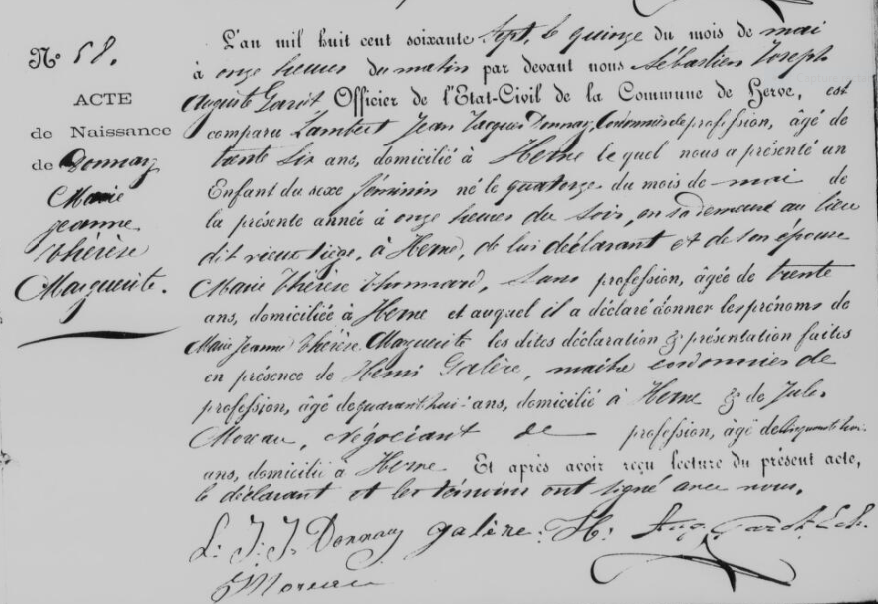 N° 58.
ACTE
de Naissance
de Donnay
Marie
Jeanne
Thérèse
Marguerite.
L'an mil huit cent soixante sept, le quinze du mois de mai
à onze heures du matin par devant nous Sébastien Joseph
Auguste Garot Officier de l'Etat-Civil de la Commune de Herve, est
comparu Lambert Jean Jacques Donnay, Cordonnier de profession, âgé de
trente six ans, domicilié à Herve lequel nous a présenté un
Enfant du sexe féminin né le quatorze du mois de mai de
la présente année à onze heures du soir, en sa demeure au lieu
dit vieux liège, à Herve, de lui déclarant et de son épouse
Marie Thérèse Thonnard, sans profession, âgée de trente
ans, domiciliée à Herve et auquel il a déclaré donner les prénoms de
Marie Jeanne Thérèse Marguerite les dites déclaration & présentation faites
en présence de Henri Galère, maître cordonnier de
profession, âgé de quarante huit ans, domicilié à Herve & de Jules
Moreau, négociant de profession, âgé de
ans, domicilié à Herve Et après avoir reçu lecture du présent acte,
le déclarant et les témoins ont signé avec nous.
L. J. J. Donnay galère. H. Aug. Garot. Ech.
J Moreau